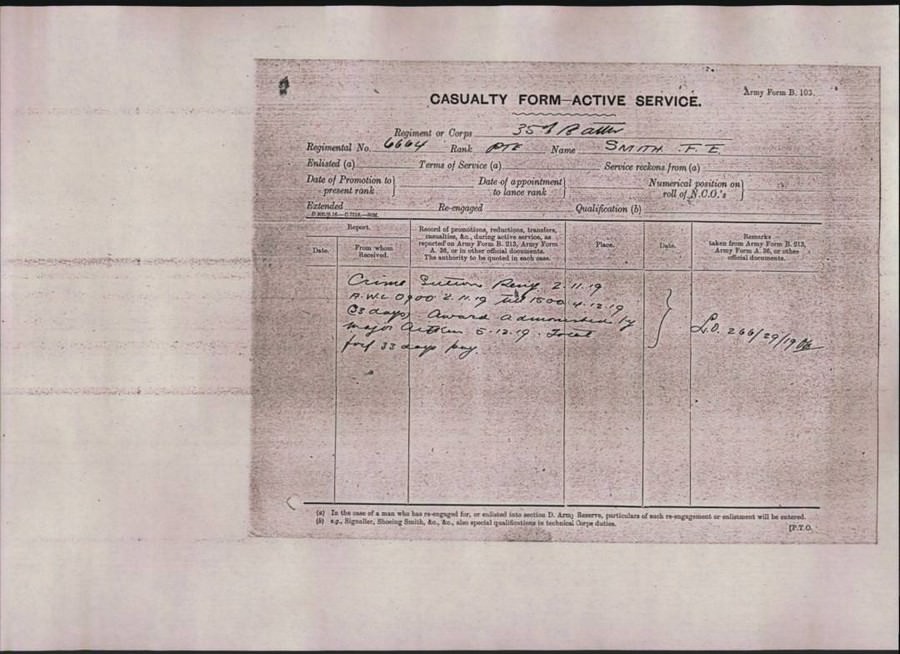 Army Form B. 103.
CASUALTY FORM—ACTIVE SERVICE.
Regiment or Corps 35th Battn
Regimental No. 6664 Rank PTE Name SMITH F. E.
Enlisted (a) Terms of Service (a) Service reckons from (a)
Date of Promotion to present rank } Date of appointment to lance rank } Numerical position on roll of N.C.O.'s }
Extended Re-engaged Qualification (b)
Report.
Date.
From whom Received.
Record of promotions, reductions, transfers,
casualties, &c., during active service, as
reported on Army Form B. 213, Army Form
A. 36, or in other official documents.
The authority to be quoted in each case.
Place.
Date.
Remarks
taken from Army Form B. 213,
Army Form A. 36, or other
official documents.
Crime 2.11.19
A.W.L 0900 2.11.19 till 1500 4.12.19
(33 days) Award admonished by
Major Aitken 5.12.19. Total
forf 33 days pay.
L.O. 266/29/19
(a) In the case of a man who has re-engaged for, or enlisted into section D. Army Reserve, particulars of such re-engagement or enlistment will be entered.
(b) e.g., Signaller, Shoeing Smith, &c., &c., also special qualifications in technical Corps duties.
[P.T.O.